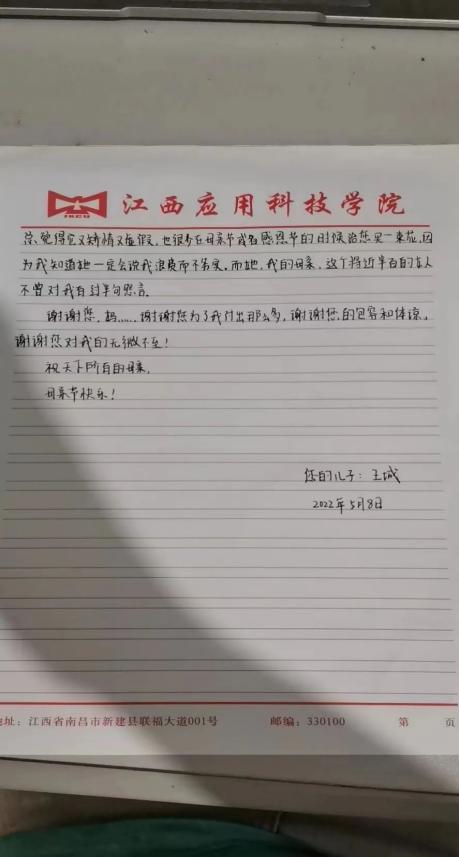 江西应用科技学院
总觉得它又矫情又虚假,也很少在母亲节或者感恩节的时候给您买一束花,因
为我知道她一定会说我浪费而不务实。而她,我的母亲,这个将近半百的女人
不曾对我有过半句怨言。
谢谢您,妈……谢谢您为了我付出那么多,谢谢您的包容和体谅,
谢谢您对我的无微不至!
祝天下所有的母亲,
母亲节快乐!
您的儿子:王城
2022年5月8日
地址:江西省南昌市新建县联福大道001号 邮编:330100 第 页